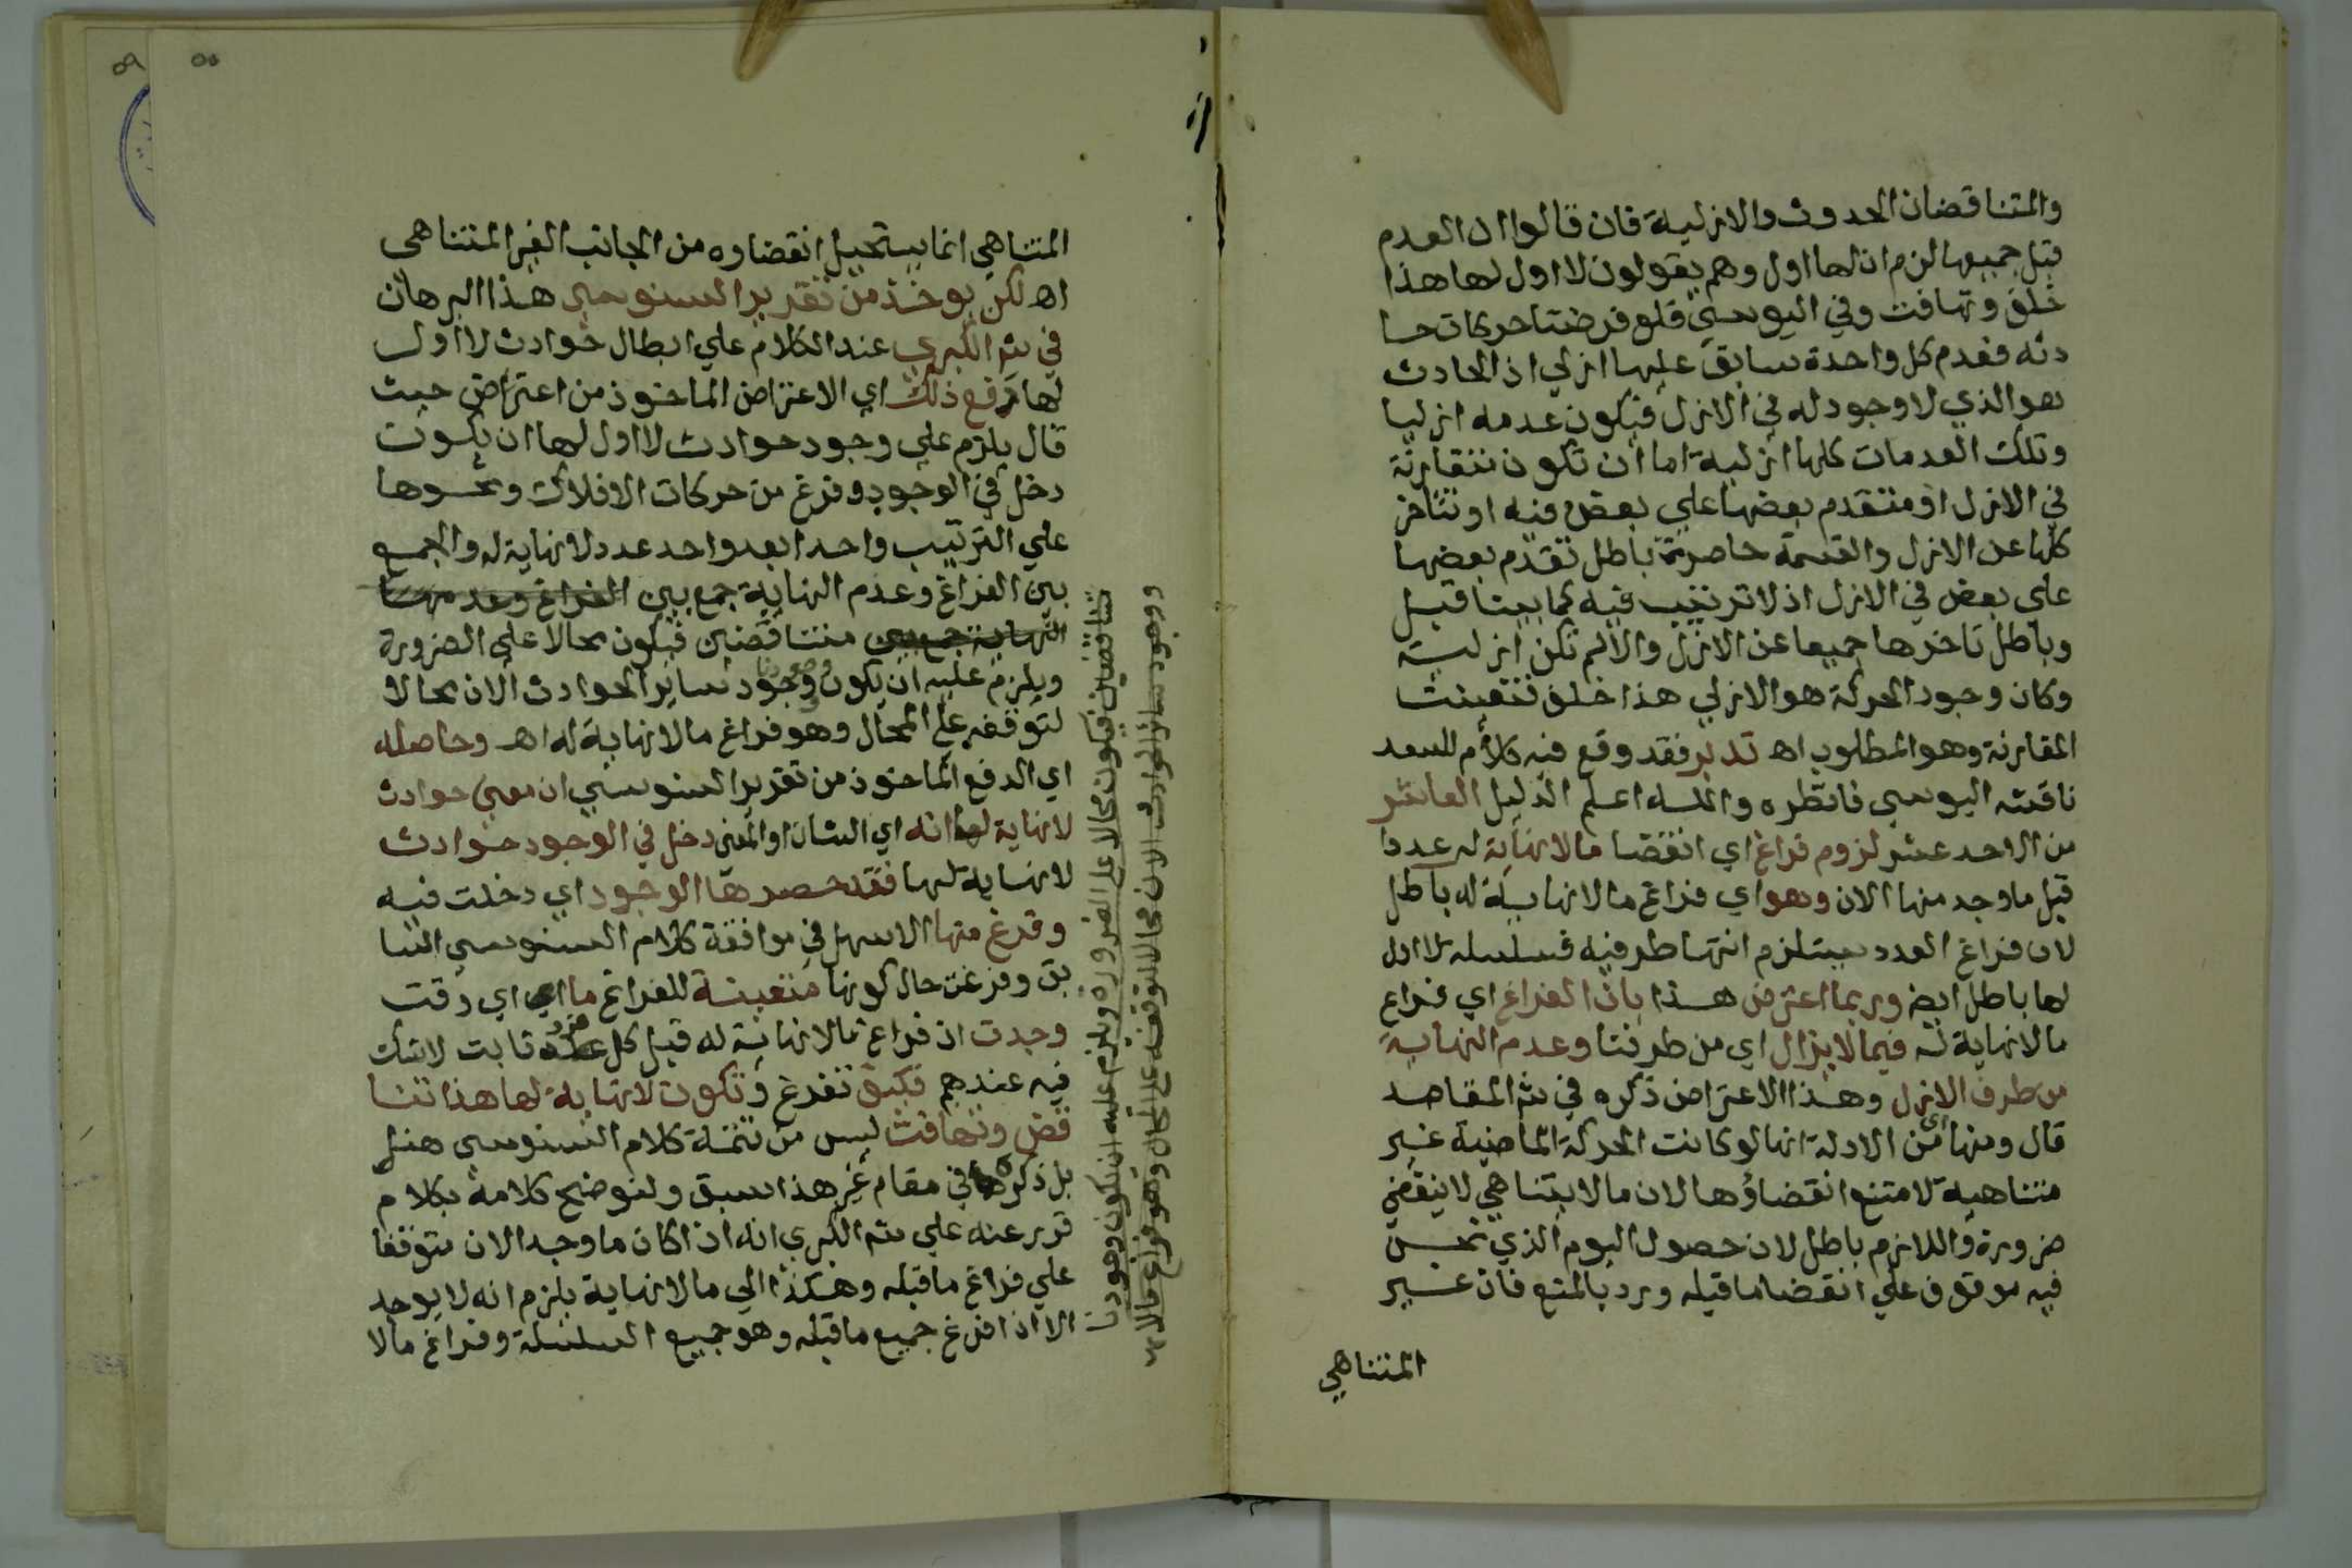 والمتناقضان الحدوث والازلية فان قالوا ان العدم
قبل جميعها لزم ان لها اول وهم يقولون لا اول لها هذا
خلف وتهافت وفي اليوسي فلو فرضنا حركات حا
دثه فعدم كل واحدة سابق عليها ازلي اذ الحادث
هو الذي لا وجود له في الازل فيكون عدمه ازليا
وتلك العدمات كلها ازلية اما ان تكون متقارنة
في الازل او متقدم بعضها علي بعض فيه او تتاخر
كلها عن الازل والقسمة حاصرة باطل تقدم بعضها
علي بعض في الازل اذ لا ترتيب فيه كما بينا قبل
وباطل تاخرها جميعا عن الازل والا لم تكن ازلية
وكان وجود الحركة هو الازلي هذا خلف فتعينت
المقارنة وهو المطلوب اه تدبر فقد وقع فيه كلام للسعد
ناقشه اليوسي فانظره والله اعلم الدليل العاشر
من الاحد عشر لزوم فراغ اي انقضا مالا نهاية له عددا
قبل ما وجد منها الان وهو اي فراغ مالا نهاية له باطل
لان فراغ العدد يستلزم انتها طرفيه فسلسله لا اول
لها باطل ايض وربما اعترض هذا بان الفراغ اي فراغ
مالا نهاية له فيما لا يزال اي من طرفنا وعدم النهاية
من طرف الازل وهذا الاعتراض ذكره في شم المقاصد
قال ومنها اي من الادلة انها لو كانت الحركة الماضية غير
متناهية لامتنع انقضاؤها لان مالا يتناهي لا ينقضي
ضرورة واللازم باطل لان حصول اليوم الذي نحن
فيه موقوف علي انقضا ما قبله ورد بالمنع فان غير
المتناهي
المتناهي انما يستحيل انقضاوه من الجانب الغير المتناهي
اه لكن يوخذ من تقدير السنوسي هذا البرهان
في شم الكبري عند الكلام علي ابطال حوادث لا اول
لها دفع ذلك اي الاعتراض الماخوذ من اعتراض حيث
قال يلزم علي وجود حوادث لا اول لها ان يكون
دخل في الوجود وفرغ من حركات الافلاك ونحوها
علي الترتيب واحدا بعد واحد عدد لا نهاية له والجمع
بين الفراغ وعدم النهاية جمع بين الفراغ وعدمها
النهاية جمع بين متناقضين فيكون محالا علي الضرورة
ويلزم عليه ان يكون وجودنا وجود ساير الحوادث الان محالا
لتوقفه علي المحال وهو فراغ مالا نهاية له اه وحاصله
اي الدفع الماخوذ من تقدير السنوسي ان معني حوادث
لا نهاية لها انه اي الشان او المعني دخل في الوجود حوادث
لا نهاية لها فقد حصرها الوجود اي دخلت فيه
وفرغ منها الاسهل في موافقة كلام السنوسي السا
بق وفرغت حال كونها متعينة للفراغ ما اي اي وقت
وجدت اذ فراغ مالا نهاية له قبل كل فرد ثابت لا شك
فيه عندهم فكيف تفرغ وتكون لا نهاية لها هذا تنا
قض وتهافت ليس من تتمة كلام السنوسي هنا
بل ذكره في مقام غير هذا سبق ولنوضح كلامه بكلام
قرر عنه علي شم الكبري انه اذا كان ما وجد الان متوقفا
علي فراغ ما قبله وهكذا الي مالا نهاية يلزم انه لا يوجد
الا اذا فرغ جميع ما قبله وهو جميع السلسلة وفراغ مالا
تناقضين فيكون محالا علي الضرورة ويلزم عليه ان يكون وجودنا
ووجود ساير الحوادث الان محالا لتوقفه علي المحال وهو فراغ مالا